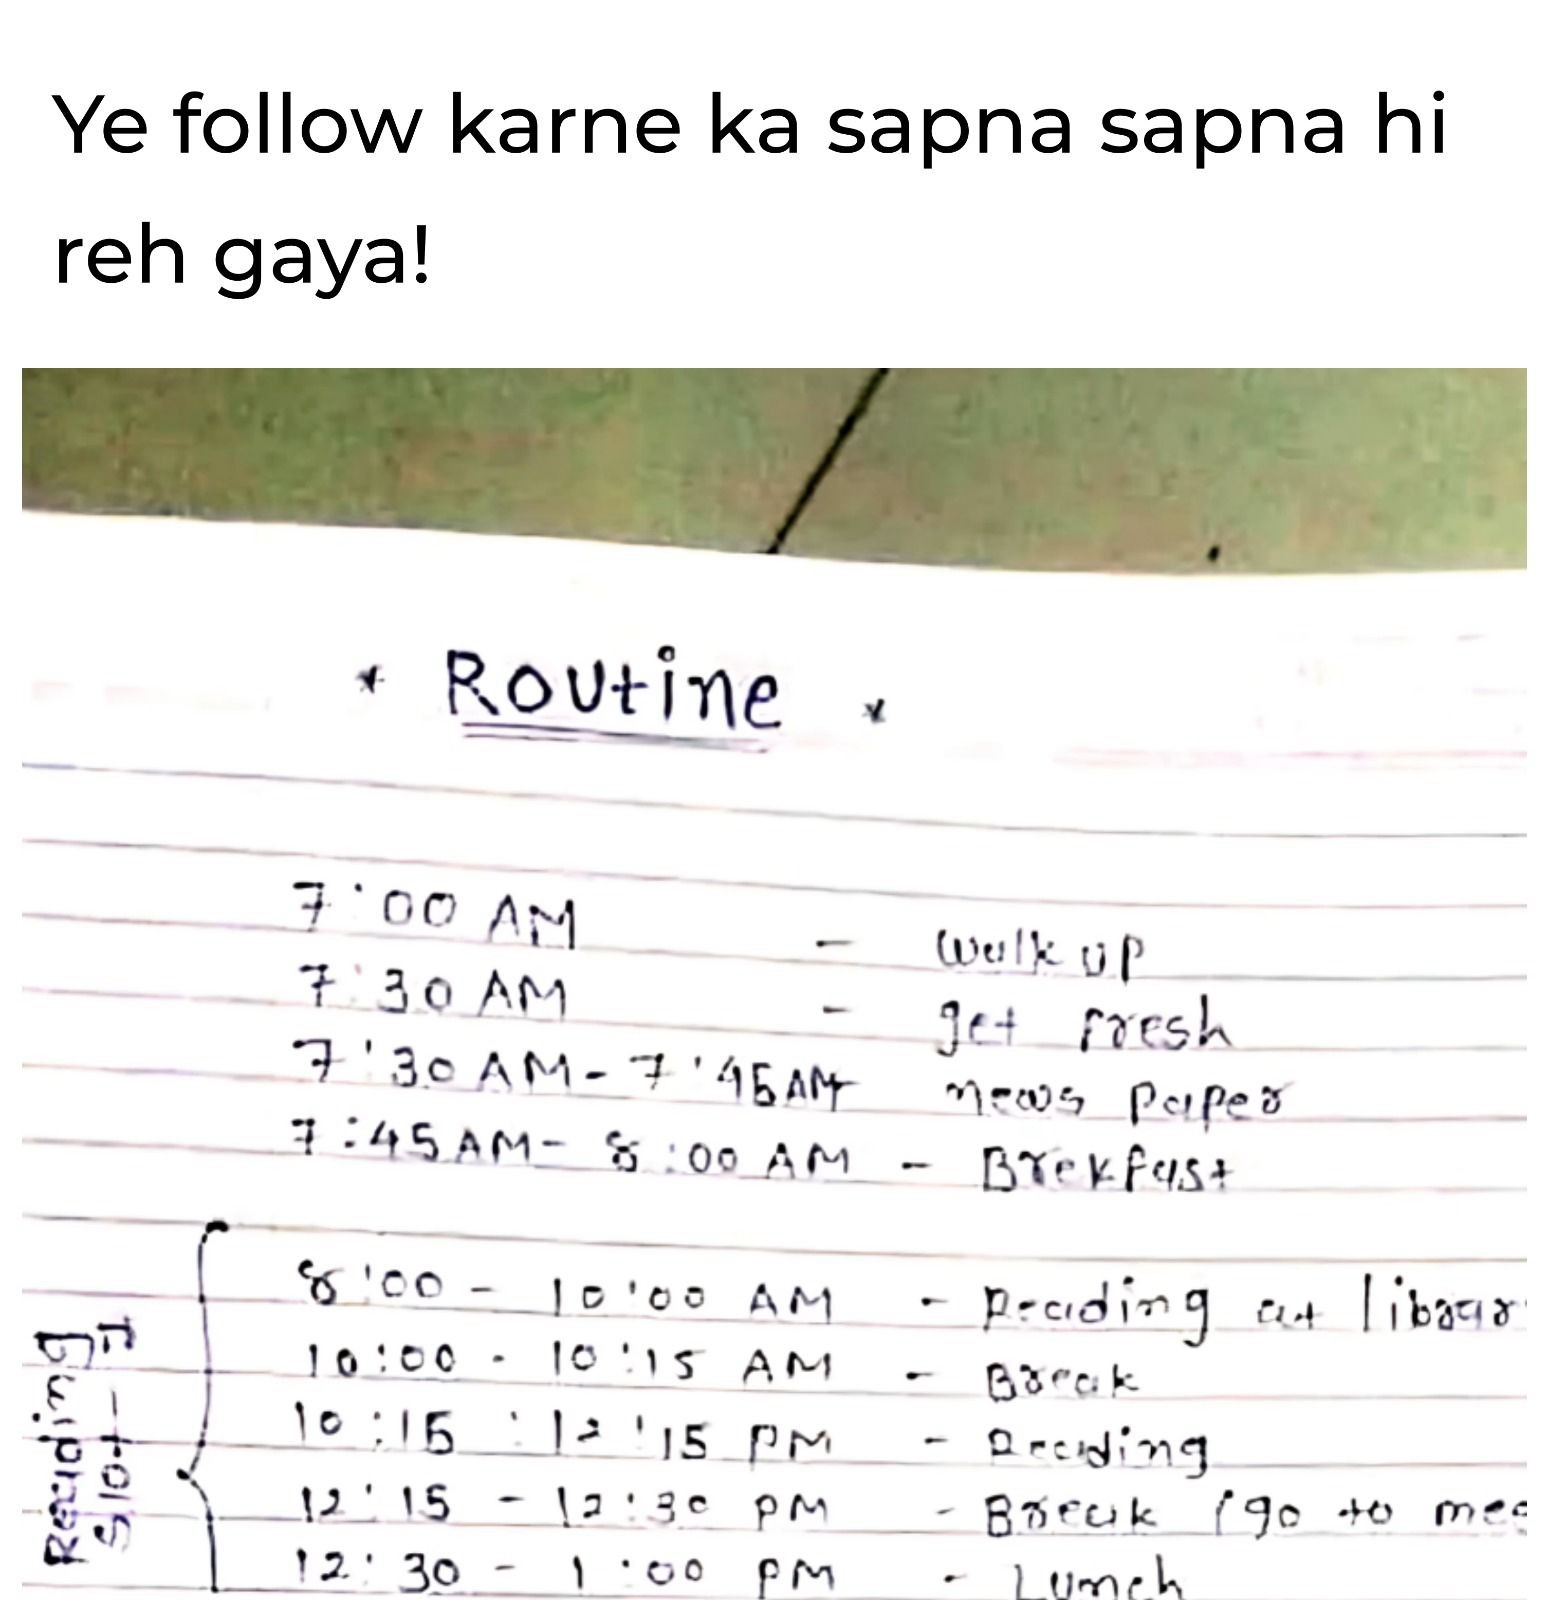 Ye follow karne ka sapna sapna hi
reh gaya!
* Routine *
7:00 AM - walk up
7:30 AM - get fresh
7:30 AM - 7:45 AM news paper
7:45 AM - 8:00 AM - Brekfast
Reading Slot - I
8:00 - 10:00 AM - Reading at librar
10:00 - 10:15 AM - Break
10:15 : 12:15 PM - Reading
12:15 - 12:30 PM - Break (go to mes
12:30 - 1:00 PM - Lunch